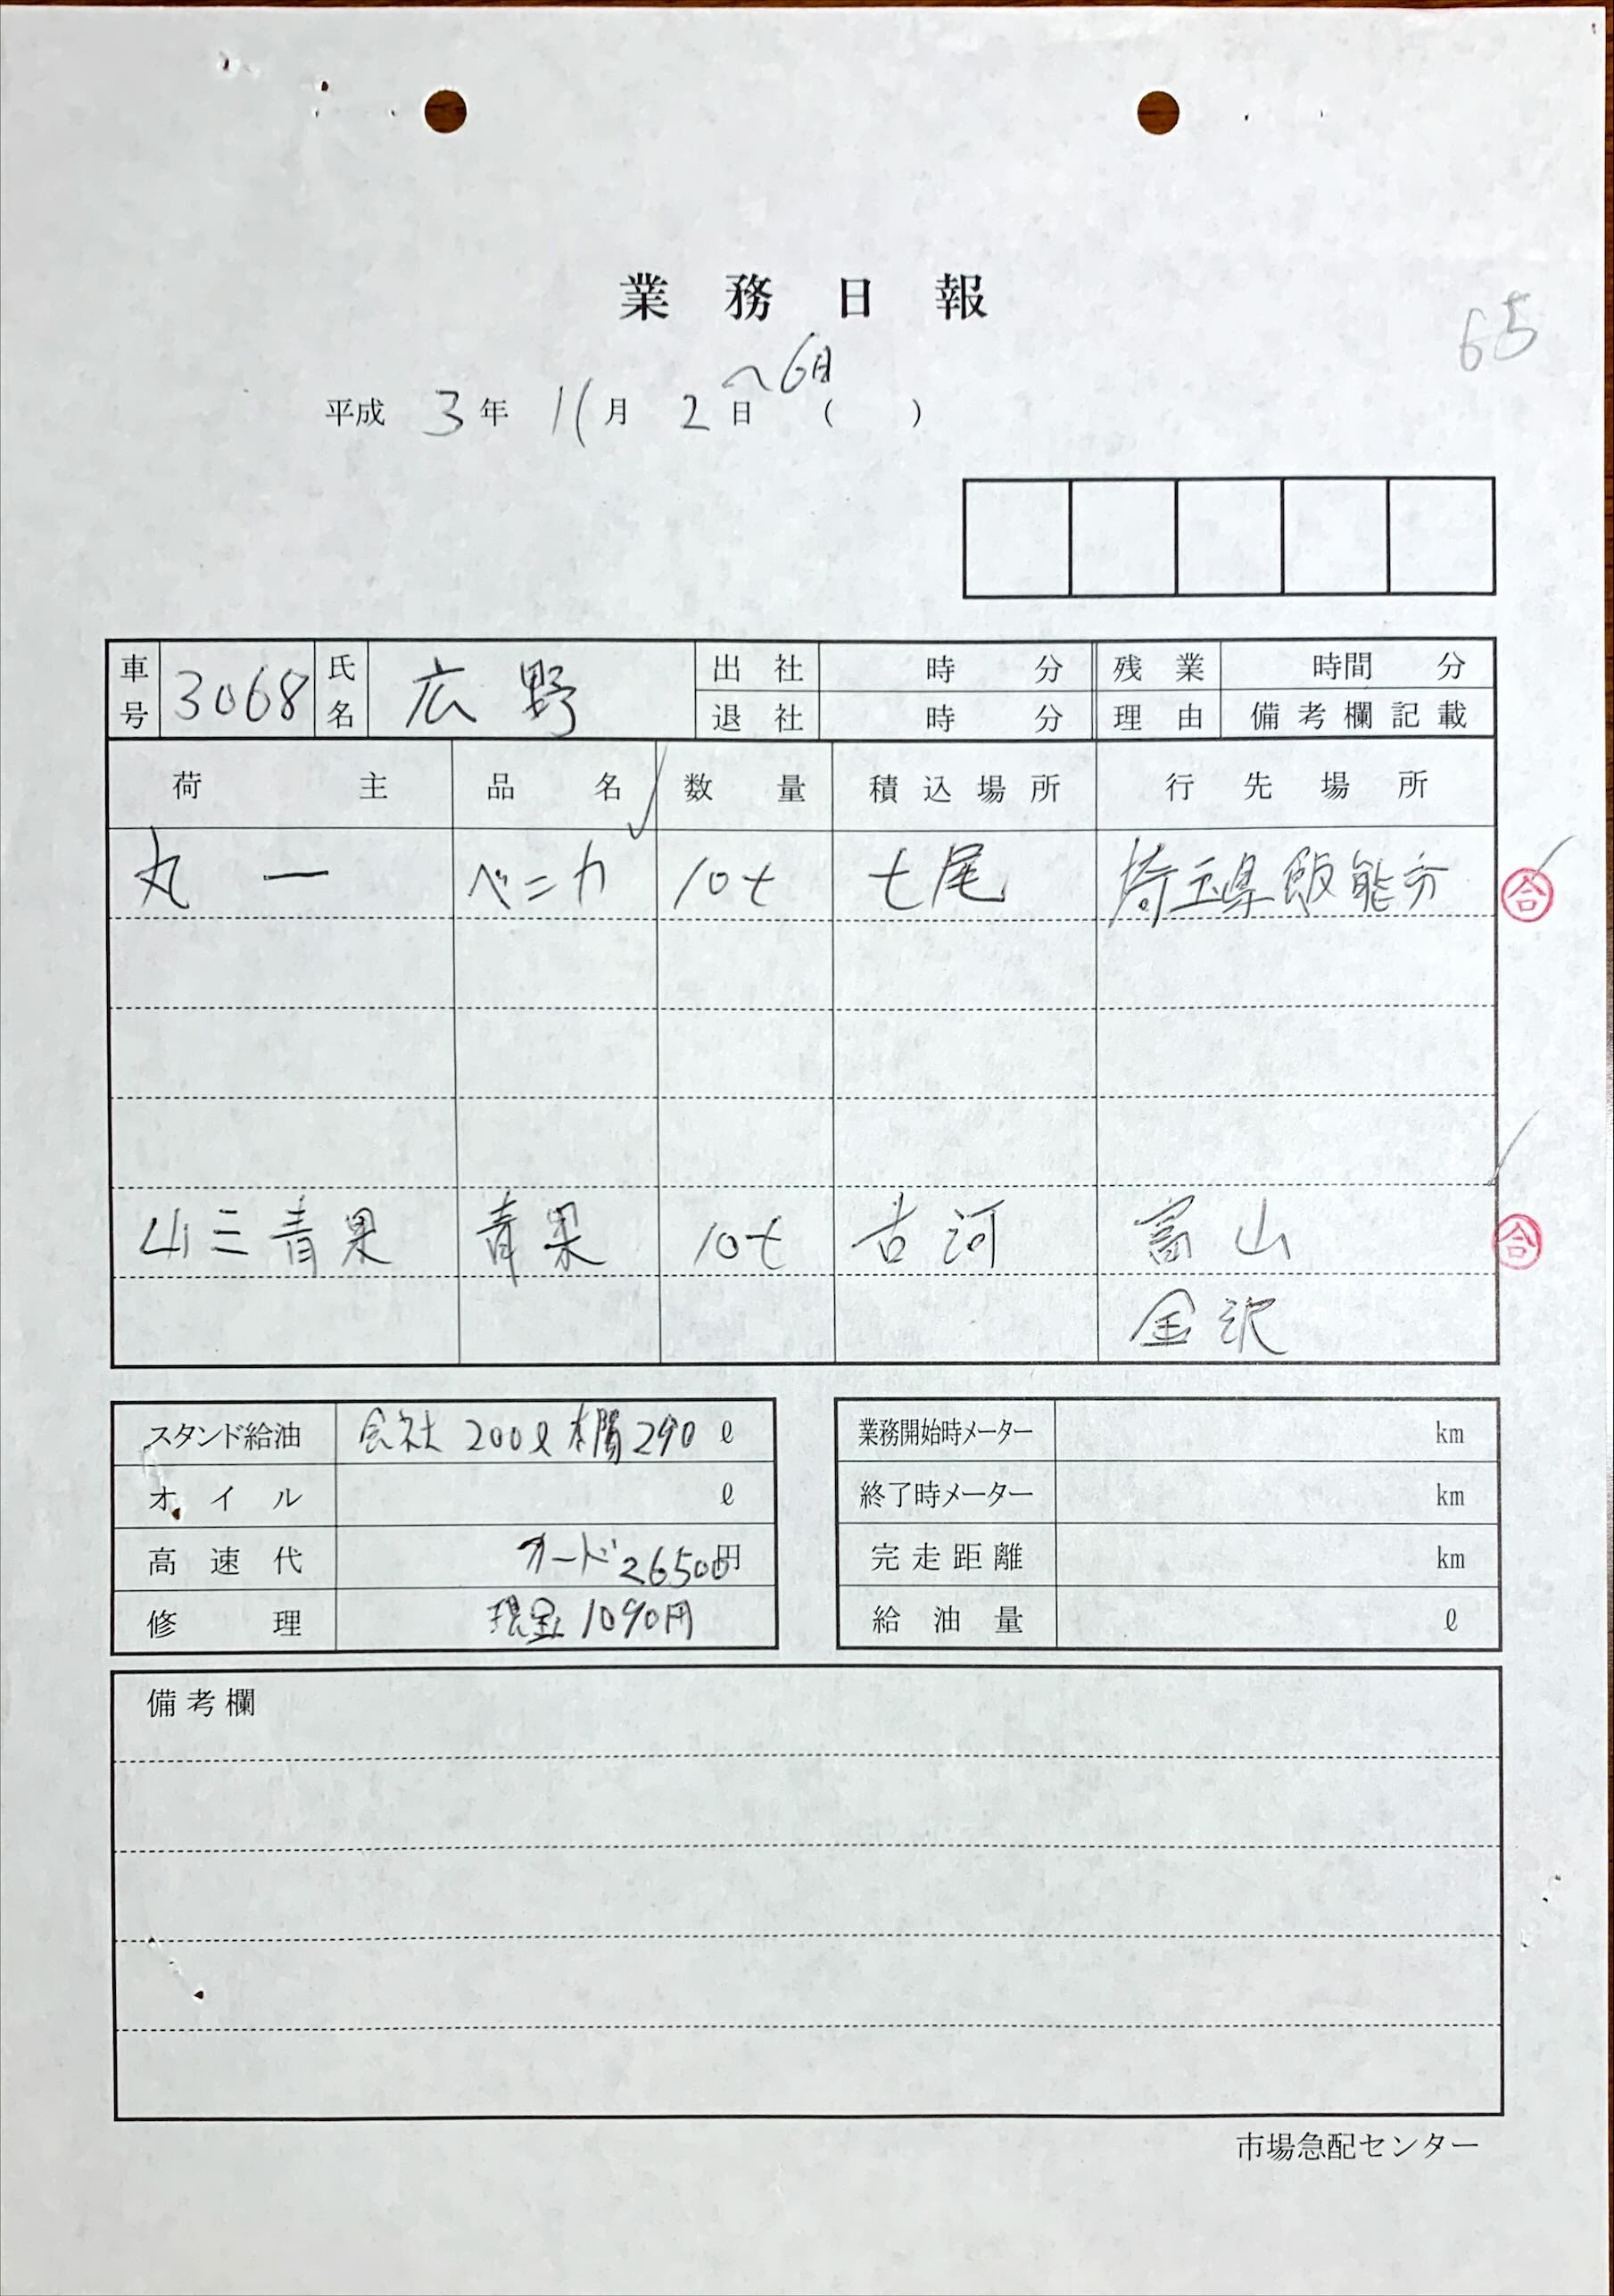 業務日報
65
〜6日
平成 3年 11月 2日 ( )
車号 3068 氏名 広野 出社 時 分 残業 時間 分
退社 時 分 理由 備考欄記載
荷主 品名 数量 積込場所 行先場所
丸一 ベニカ 10t 七尾 埼玉県飯能市
合
山三青果 青果 10t 古河 富山
合
金沢
スタンド給油 会社 200ℓ 290 ℓ
オイル ℓ
高速代 カード26500円
修理 現金1090円
業務開始時メーター km
終了時メーター km
完走距離 km
給油量 ℓ
備考欄
市場急配センター